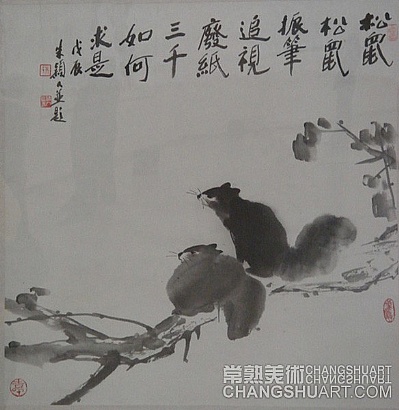 松鼠
松鼠
振筆
追視
廢紙
三千
如何
求是
戊辰
朱穎人並題
常熟美術 CHANGSHUART
CHANGSHUART.COM